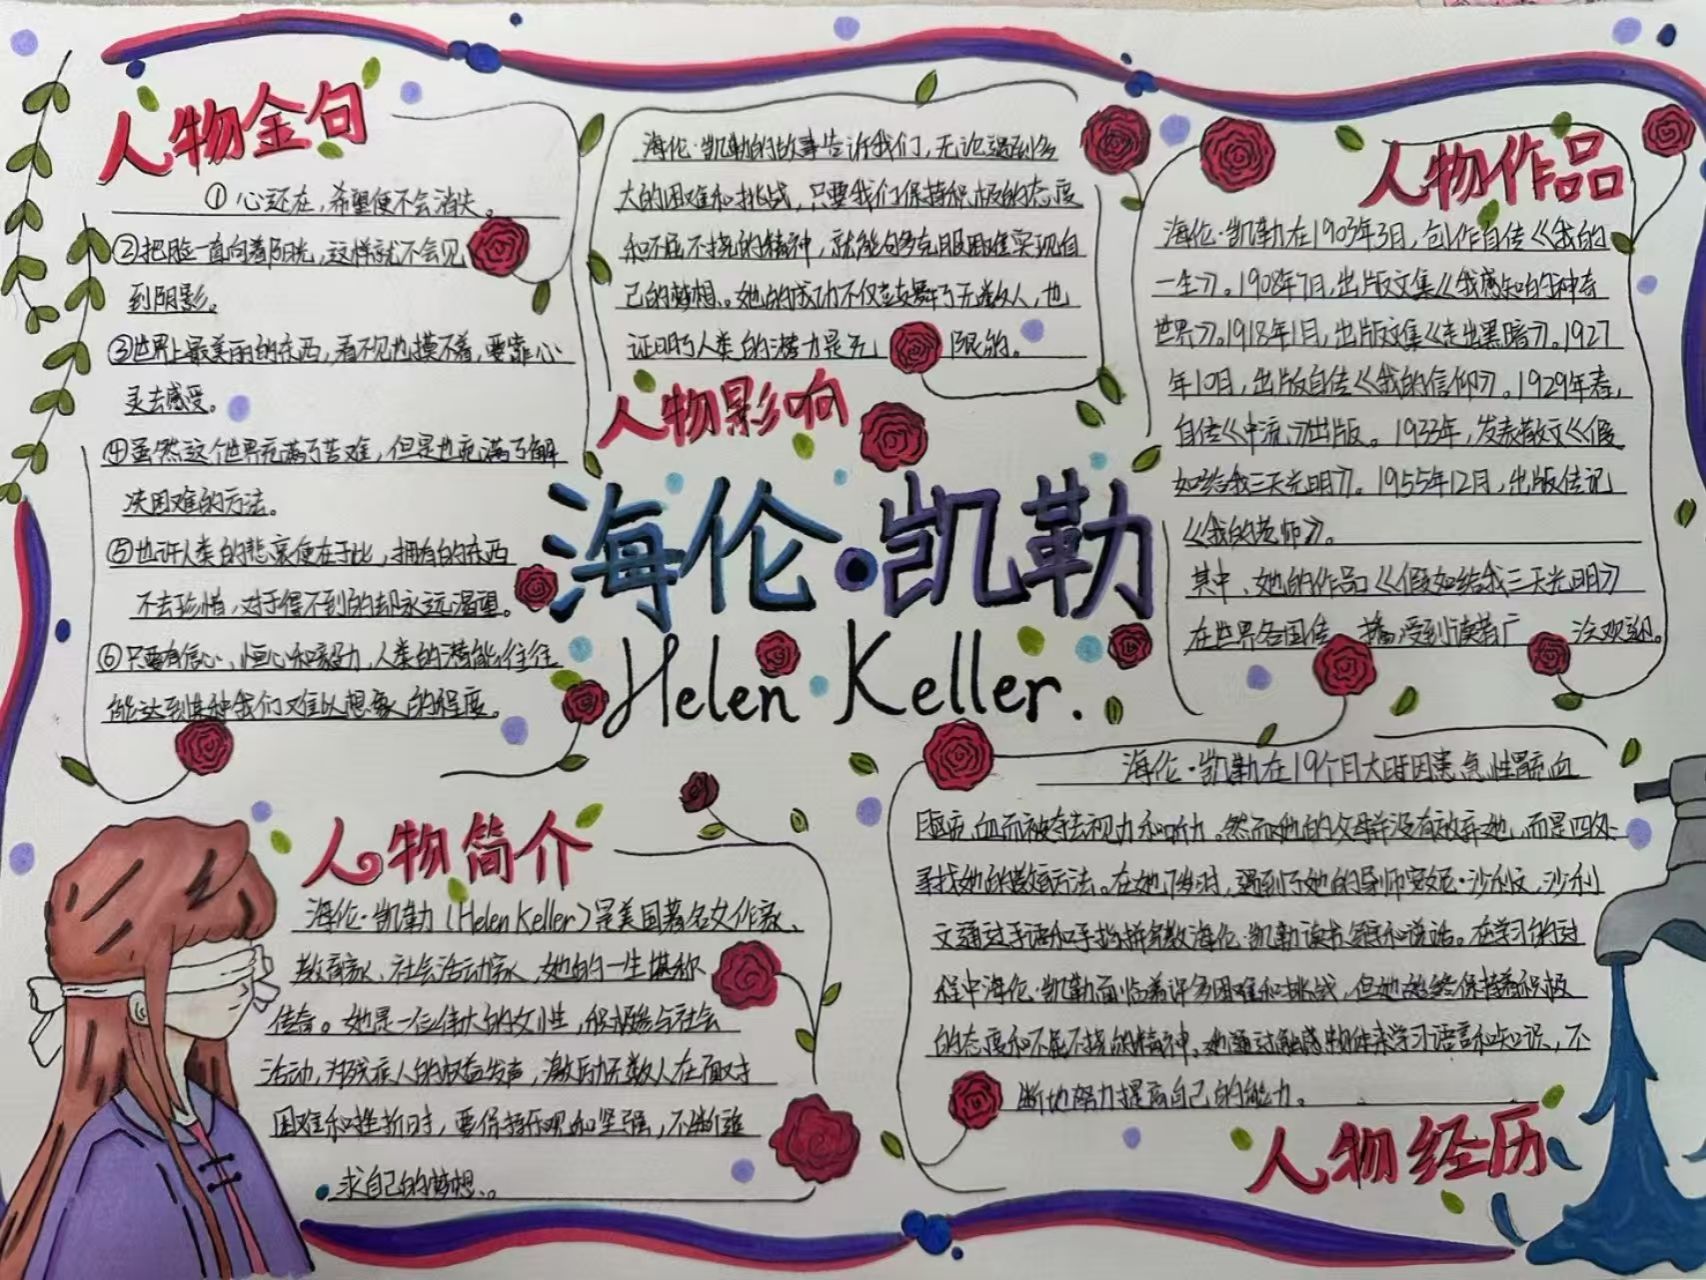 人物金句
①心还在,希望便不会消失。
②把脸一直向着阳光,这样就不会见
到阴影。
③世界上最美丽的东西,看不见也摸不着,要靠心
灵去感受。
④虽然这个世界充满了苦难,但是也充满了解
决困难的方法。
⑤也许人类的悲哀便在于此,拥有的东西
不去珍惜,对于得不到的却永远渴望。
⑥只要有信心、恒心和毅力,人类的潜能往往
能达到某种我们难以想象的程度。
海伦·凯勒的故事告诉我们,无论遇到多
大的困难和挑战,只要我们保持积极的态度
和不屈不挠的精神,就能够克服困难实现自
己的梦想。她的成功不仅鼓舞了无数人,也
证明了人类的潜力是无限的。
人物影响
人物作品
海伦·凯勒在1903年3日,创作自传《我的
一生》。1908年7日,出版文集《我感知的神奇
世界》。1918年1日,出版文集《走出黑暗》。1927
年10月,出版自传《我的信仰》。1929年春,
自传《中流》出版。1933年,发表散文《假
如给我三天光明》。1955年12月,出版传记
《我的老师》。
其中、她的作品《假如给我三天光明》
在世界各国传播,受到读者广泛欢迎。
海伦·凯勒
Helen Keller.
人物简介
海伦·凯勒(Helen Keller)是美国著名女作家、
教育家、社会活动家,她的一生堪称
传奇。她是一位伟大的女性,积极参与社会
活动,为残疾人的权益发声,激励无数人在面对
困难和挫折时,要保持乐观和坚强,不断追
求自己的梦想。
海伦·凯勒在19个月大时因患急性脑充血
而被夺去视力和听力。然而她的父母并没有放弃她,而是四处
寻找她的教育方法。在她7岁时,遇到了她的导师安妮·沙利文,沙利
文通过手语和手指拼写教海伦·凯勒读书写字和说话。在学习的过
程中海伦·凯勒面临着许多困难和挑战,但她始终保持着积极
的态度和不屈不挠的精神。她通过触感物体来学习语言和知识,不
断地努力提高自己的能力。
人物经历